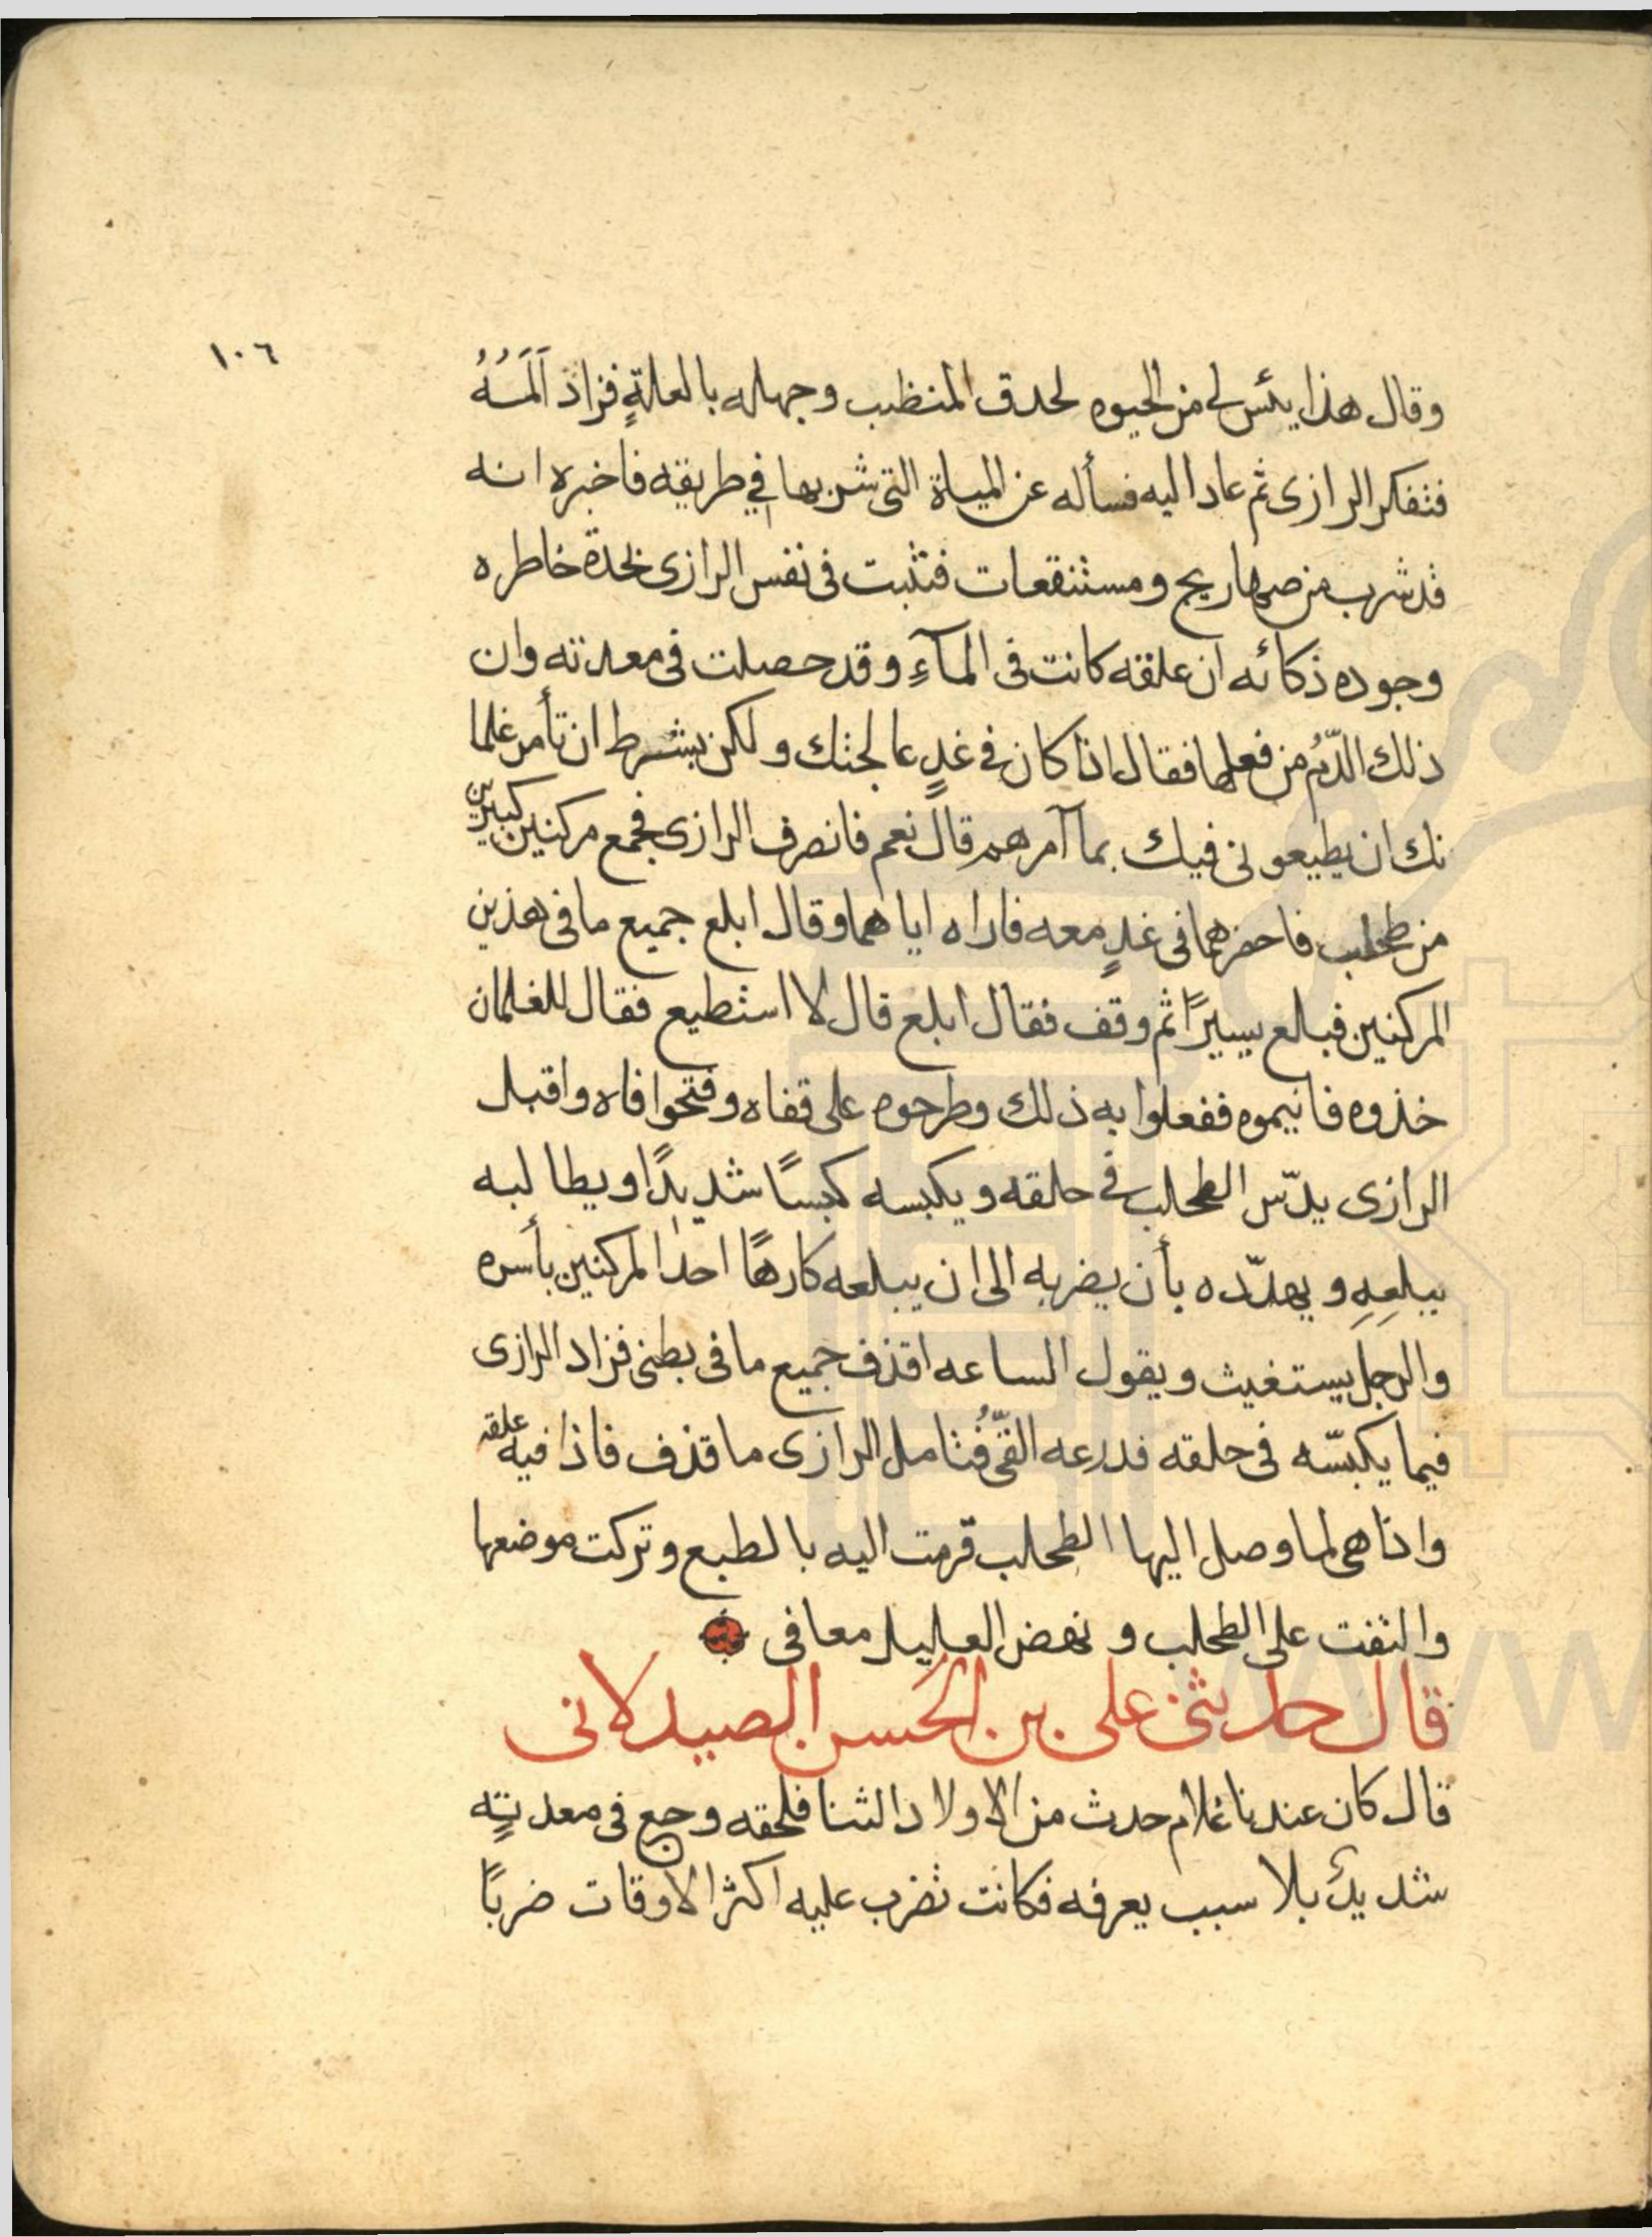 ١٠٦
وقال هذا يئس لى من الحيوه لحدق المتطبب وجهله بالعلةٍ فزاد اَلَمَهُ
فتفكر الرازى ثم عاد اليه فسأله عن المياة التى شربها في طريقه فاخبره انه
قد شرب من صهاريج ومستنقعات فتثبت فى نفس الرازى لحدة خاطره
وجوده ذكائه ان علقه كانت فى المآءِ وقد حصلت فى معدته وان
ذلك الدّمُ من فعلها فقال اذا كان فى غدٍ عالجتك ولكن بشرط ان تأمر غلما
نك ان يطيعونى فيك بما آمرهم قال نعم فانصرف الرازى فجمع مركنين كبيرين
من طحلب فاحضرهما فى غدٍ معه فاراه اياهما وقال ابلع جميع ما فى هذين
المركنين فبلع يسيرًا ثم وقف فقال ابلع قال لا استطيع فقال للغلمان
خذوه فانيموه ففعلوا به ذلك وطرحوه على قفاه وفتحوا فاه واقبل
الرازى يدسّ الطحلب فى حلقه ويكبسه كبسًا شديدًا ويطالبه
ببلعِهِ ويهدّده بأن يضربه الى ان يبلعه كارهًا احد المركنين بأسره
والرجل يستغيث ويقول الساعه اقذف جميع ما فى بطنى فزاد الرازى
فيما يكبسّه فى حلقه فدرعه القّئُ فتامل الرازى ما قذف فاذا فيه علقه
واذا هى لما وصل اليها الطحلب قرمت اليه بالطبع وتركت موضعها
والتفت على الطحلب ونهض العليل معافى
قال حدثنى على بن الحسن الصيدلانى
قال كان عندنا غلام حدث من الاولاد الثنا فلحقه وجع فى معدتٍه
شديدٌ بلا سبب يعرفه فكانت تضرب عليه اكثر الاوقات ضربًا